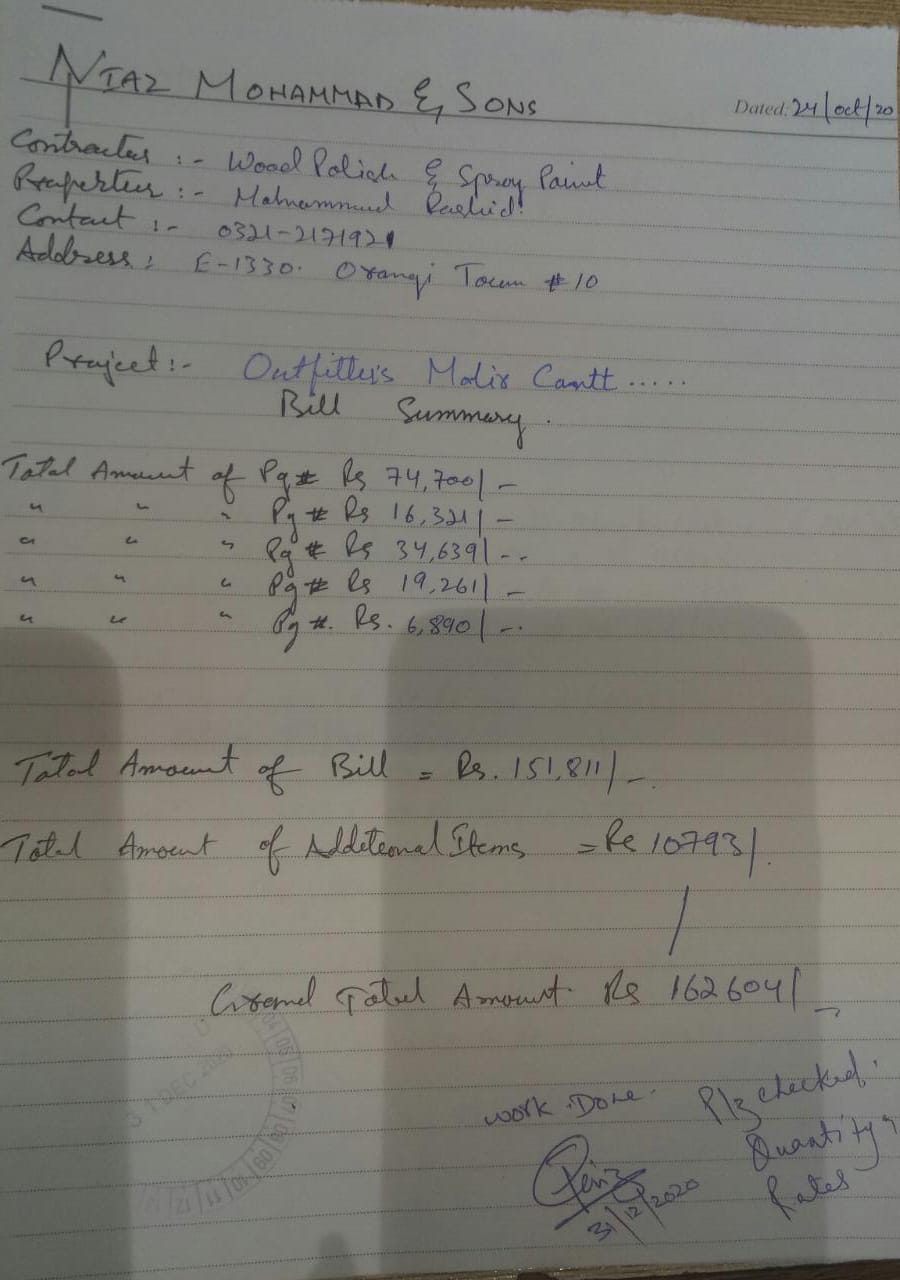 NIAZ MOHAMMAD & SONS
Dated: 24/oct/20
Contracter :- Wood Polish & Spray Paint
Properter :- Mohammad Rashid.
Contact :- 0321-2171921
Address: E-1330. Orangi Town # 10
Project :- Outfitter's Malir Cantt .....
Bill Summary.
Total Amount of Pg # Rs 74,700/-
" " " Pg # Rs 16,321/-
" " " Pg # Rs 34,639/-.
" " " Pg # Rs 19,261/-
" " " Pg #. Rs. 6,890/-.
Total Amount of Bill = Rs. 151,811/-.
Total Amount of Additional Items = Rs 10793/.
Grand Total Amount. Rs 162604/-
31 DEC 2020
work Done.
Plz checked.
Quantity &
Rates
31/12/2020